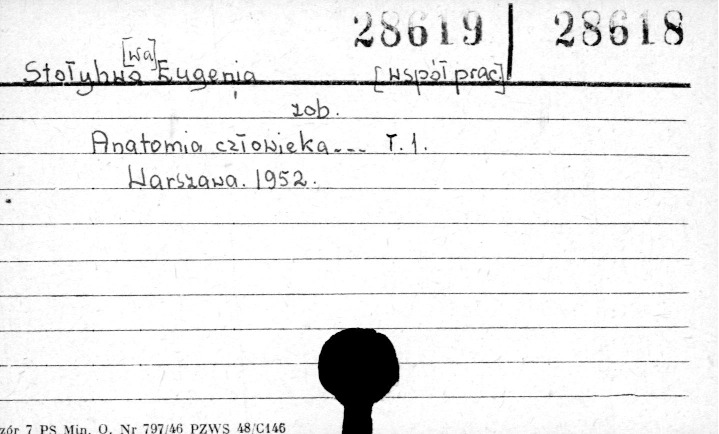 28619 | 28618
[wa]
Stołyhwo Eugenia [współprac]
zob.
Anatomia człowieka... T. 1.
Warszawa. 1952.
zór 7 PS Min. O. Nr 797/46 PZWS 48/C146